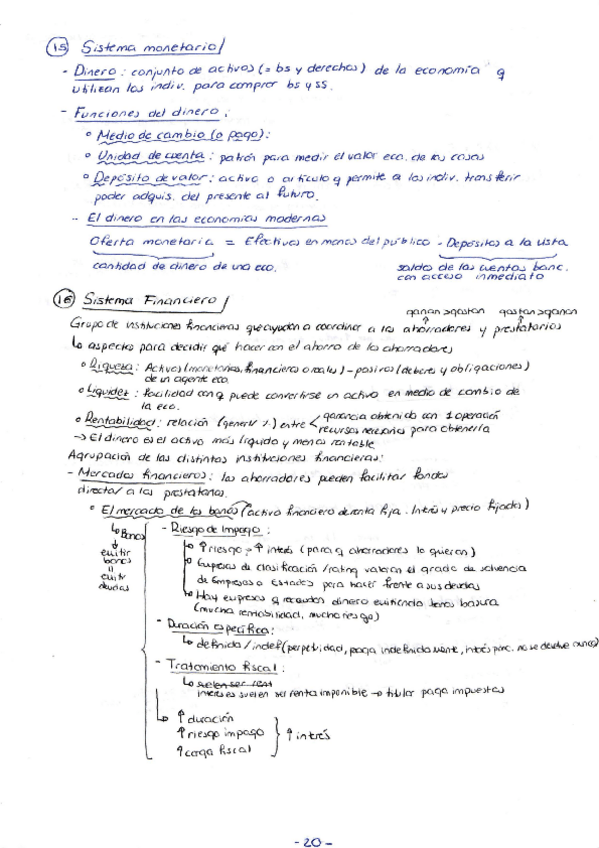 15 Sistema monetario/
- Dinero : conjunto de activos (= bs y derechos) de la economía q
utilizan los indiv. para comprar bs y ss.
- Funciones del dinero :
° Medio de cambio (o pago) :
° Unidad de cuenta : patrón para medir el valor eco. de las cosas
° Depósito de valor : activo o artículo q permite a los indiv. transferir
poder adquis. del presente al futuro.
- El dinero en las economías modernas
Oferta monetaria = Efectivos en manos del público - Depósitos a la vista
cantidad de dinero de una eco.
saldos de las cuentas banc.
con acceso inmediato
16 Sistema Financiero/
ganan > gastan gastan > ganan
Grupo de instituciones financieras que ayudan a coordinar a los ahorradores y prestatarios
↳ aspectos para decidir qué hacer con el ahorro de los ahorradores
° Riqueza : Activos (monetarios, financieros o reales) - pasivos (deberes y obligaciones)
de un agente eco.
° Liquidez : facilidad con q puede convertirse un activo en medio de cambio de
la eco.
° Rentabilidad : relación (general/ %) entre < ganancia obtenida con 1 operación
recursos necesarios para obtenerla
-> El dinero es el activo más líquido y menos rentable
Agrupación de las distintas instituciones financieras:
- Mercados financieros : los ahorradores pueden facilitar fondos
directa/ a los prestatarios.
° El mercado de los bonos (activo financiero de renta fija. Interés y precio fijados)
↳ Bonos
↓
emitir
bonos
=
emitir
deudas
- Riesgo de Impago :
↳ ↑ riesgo → ↑ interés (para q ahorradores lo quieran)
↳ Empresas de clasificación / rating valoran el grado de solvencia
de Empresas o Estados para hacer frente a sus deudas
↳ Hay empresas q recaudan dinero emitiendo bonos basura
(mucha rentabilidad, mucho riesgo)
- Duración específica :
↳ definida / indef (perpetuidad, paga indefinidamente, interés para. no se devuelve nunca)
- Tratamiento fiscal :
↳ suelen ser rent
intereses suelen ser renta imponible → titular paga impuestos
↳ ↑ duración
↑ riesgo impago
↑ carga fiscal
} ↑ interés
- 20 -